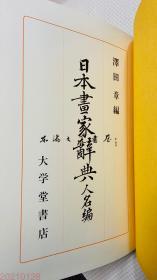 澤田章編
日本畫家辭典人名編
大学堂書店
20210128